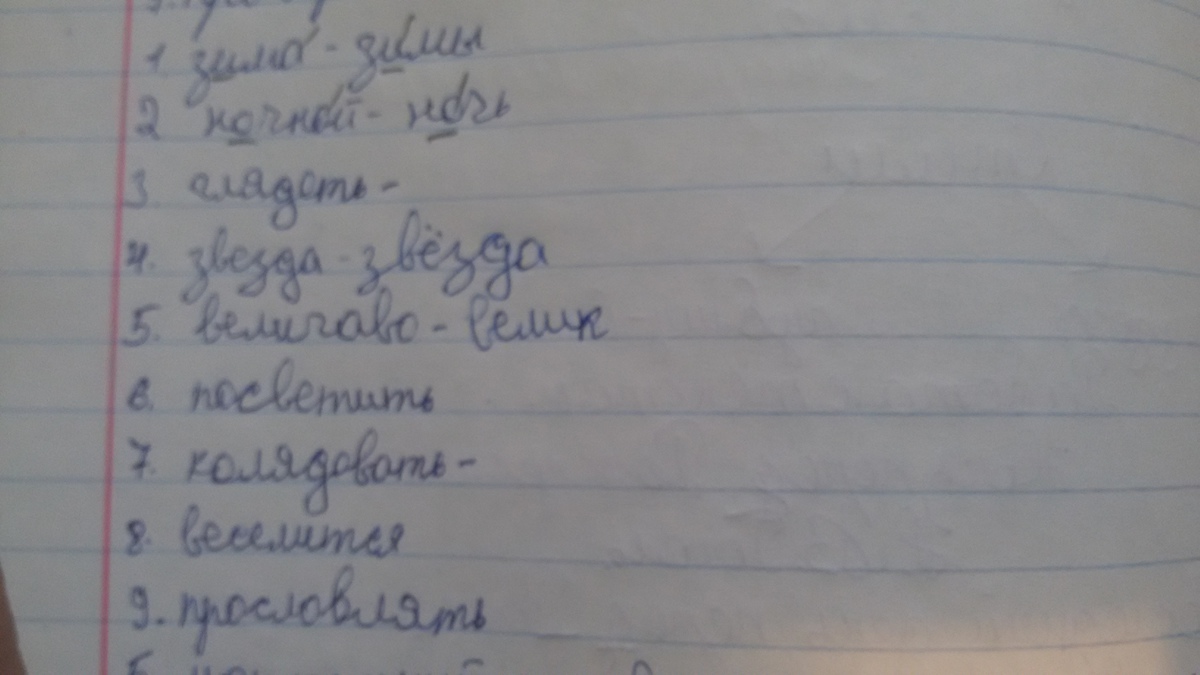 1 зима́ - зи́мы
2 ночно́й - но́чь
3 глядеть -
4. звезда - звёзда
5. величаво - велик
6. посветить
7. колядовать -
8. веселится
9. прославлять